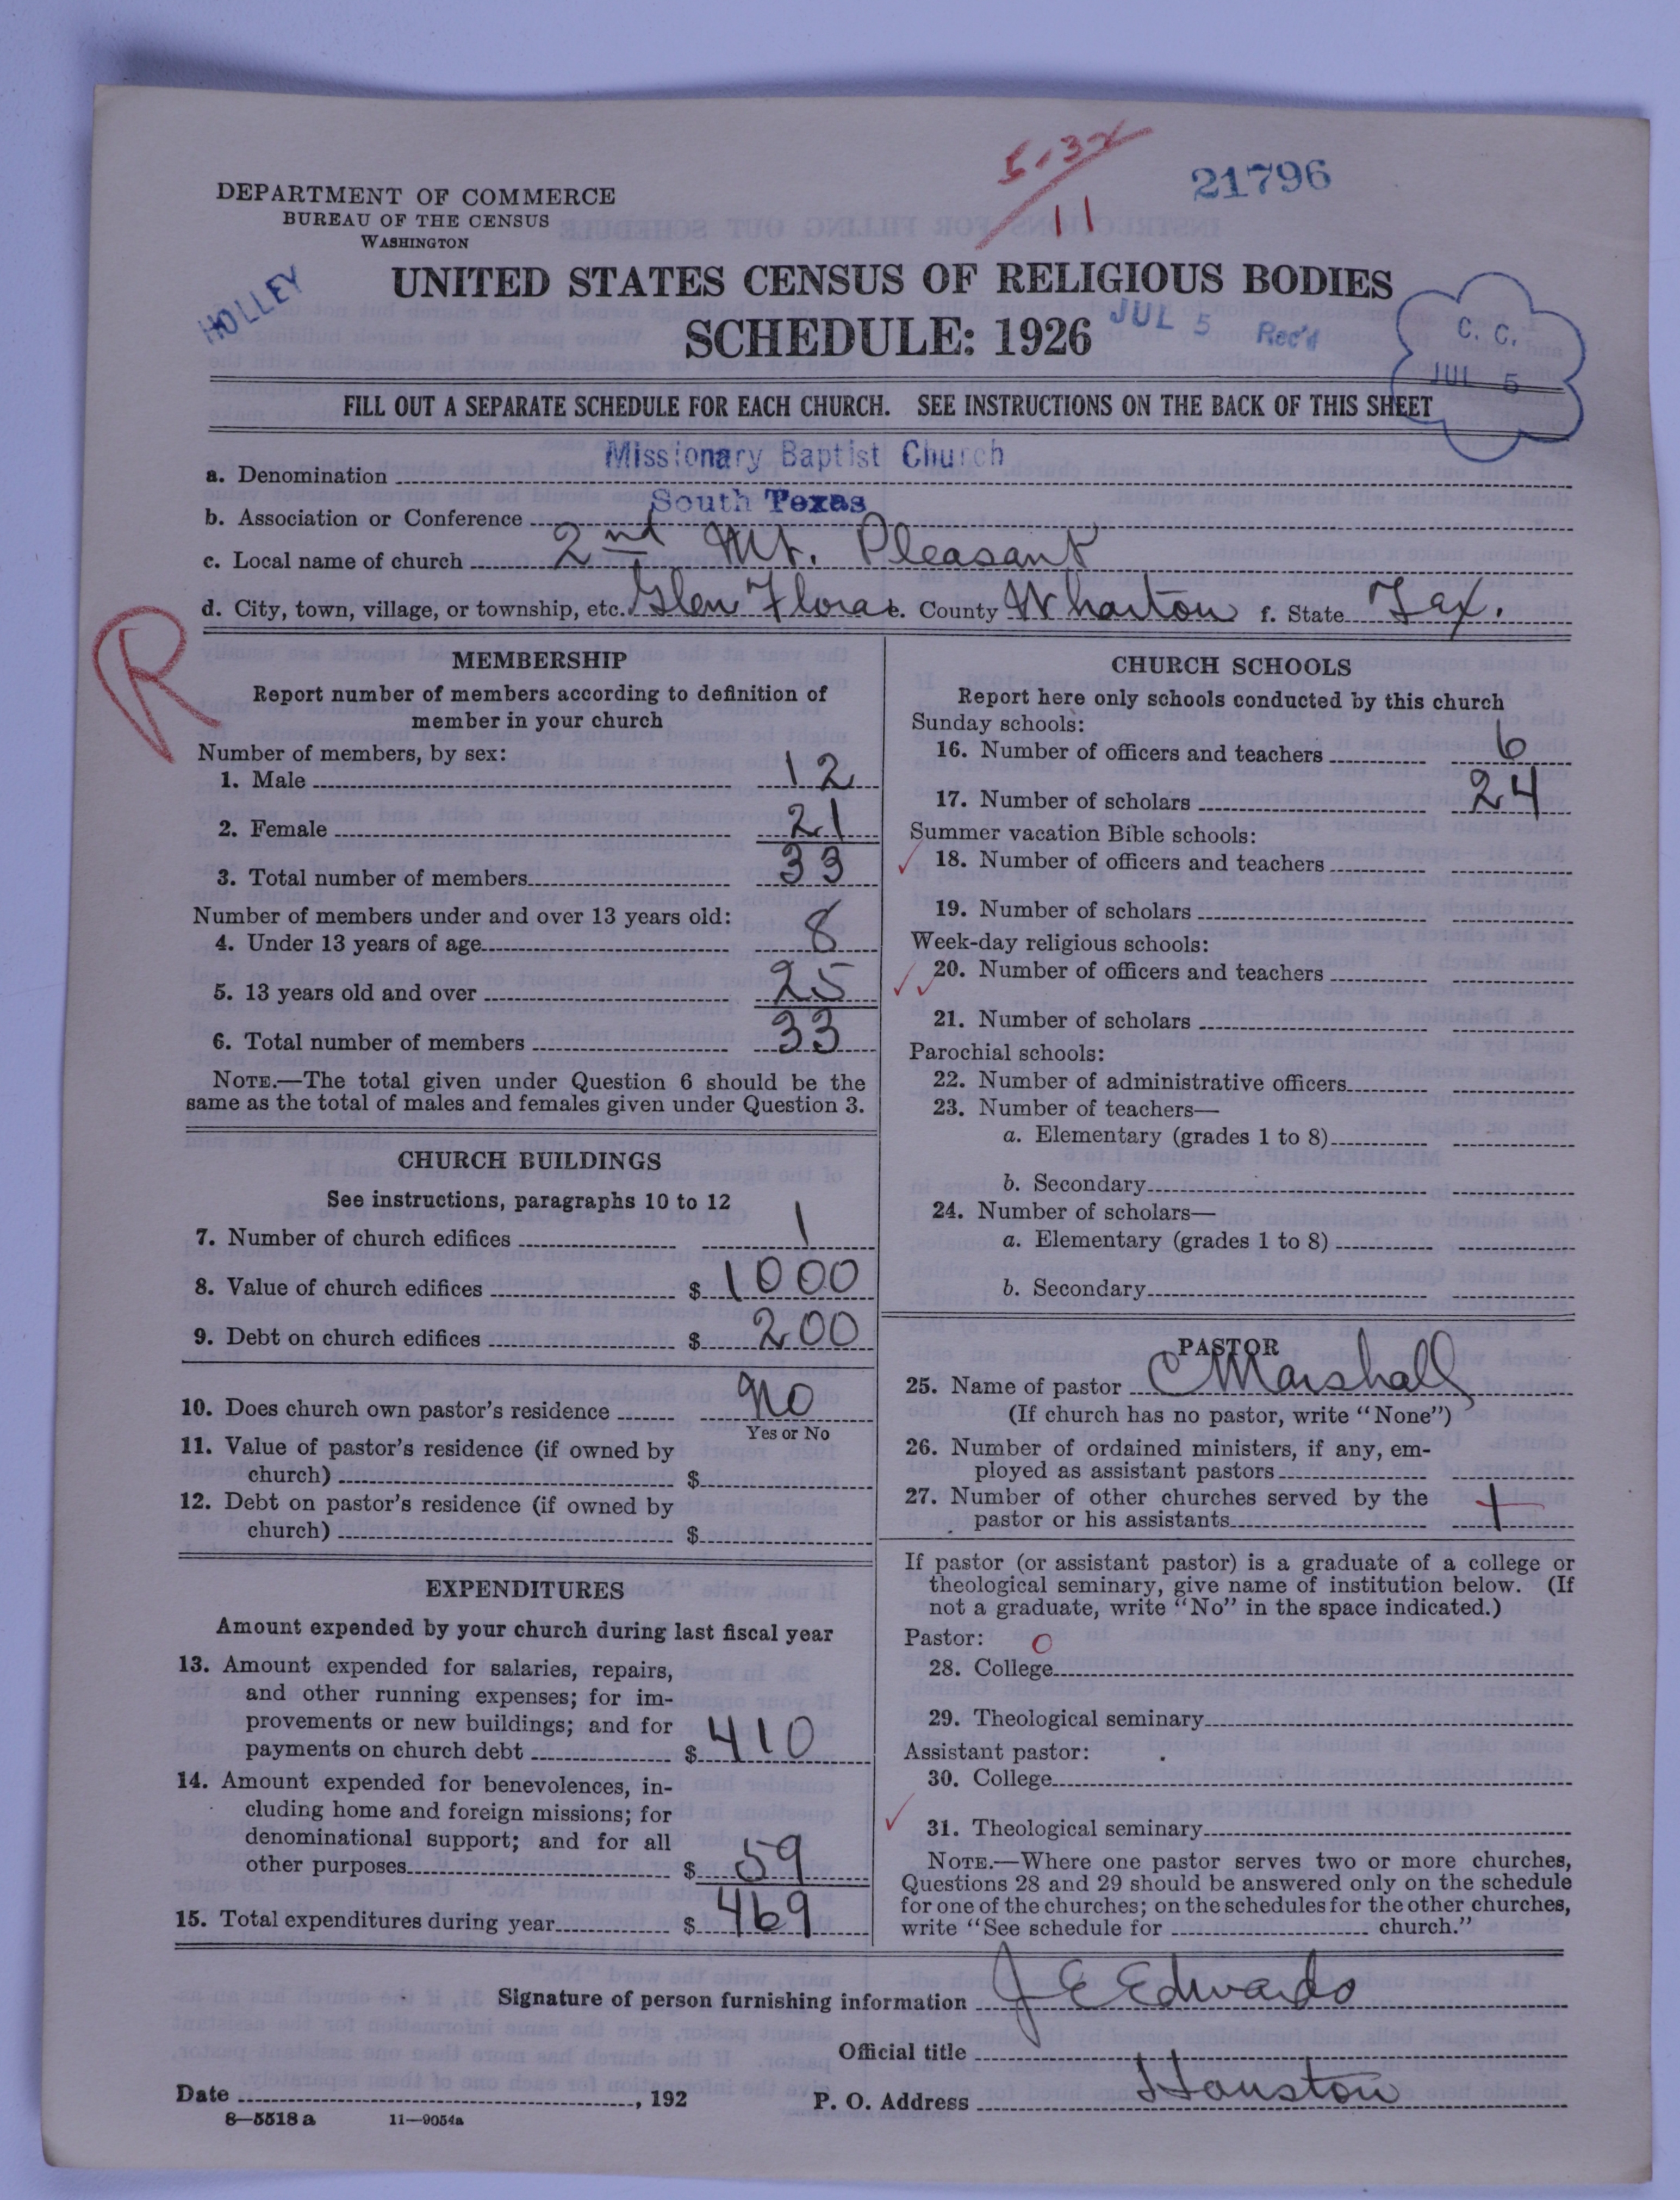 5-32
11
21796
DEPARTMENT OF COMMERCE
BUREAU OF THE CENSUS
WASHINGTON
HOLLEY
UNITED STATES CENSUS OF RELIGIOUS BODIES
SCHEDULE: 1926
JUL 5 Rec'd
C. C.
JUL 5
FILL OUT A SEPARATE SCHEDULE FOR EACH CHURCH. SEE INSTRUCTIONS ON THE BACK OF THIS SHEET
a. Denomination Missionary Baptist Church
b. Association or Conference South Texas
c. Local name of church 2nd Mt. Pleasant
d. City, town, village, or township, etc. Glen Flora e. County Wharton f. State Tex.
R
MEMBERSHIP
Report number of members according to definition of
member in your church
Number of members, by sex:
1. Male 12
2. Female 21
3. Total number of members 33
Number of members under and over 13 years old:
4. Under 13 years of age 8
5. 13 years old and over 25
6. Total number of members 33
NOTE.—The total given under Question 6 should be the
same as the total of males and females given under Question 3.
CHURCH BUILDINGS
See instructions, paragraphs 10 to 12
7. Number of church edifices 1
8. Value of church edifices $ 1000
9. Debt on church edifices $ 200
10. Does church own pastor's residence No
Yes or No
11. Value of pastor's residence (if owned by
church) $
12. Debt on pastor's residence (if owned by
church) $
EXPENDITURES
Amount expended by your church during last fiscal year
13. Amount expended for salaries, repairs,
and other running expenses; for im-
provements or new buildings; and for
payments on church debt $ 410
14. Amount expended for benevolences, in-
cluding home and foreign missions; for
denominational support; and for all
other purposes $ 59
15. Total expenditures during year $ 469
CHURCH SCHOOLS
Report here only schools conducted by this church
Sunday schools:
16. Number of officers and teachers 6
17. Number of scholars 24
Summer vacation Bible schools:
18. Number of officers and teachers
19. Number of scholars
Week-day religious schools:
20. Number of officers and teachers
21. Number of scholars
Parochial schools:
22. Number of administrative officers
23. Number of teachers—
a. Elementary (grades 1 to 8)
b. Secondary
24. Number of scholars—
a. Elementary (grades 1 to 8)
b. Secondary
PASTOR
25. Name of pastor C Marshall
(If church has no pastor, write "None")
26. Number of ordained ministers, if any, em-
ployed as assistant pastors
27. Number of other churches served by the
pastor or his assistants 1
If pastor (or assistant pastor) is a graduate of a college or
theological seminary, give name of institution below. (If
not a graduate, write "No" in the space indicated.)
Pastor: 0
28. College
29. Theological seminary
Assistant pastor:
30. College
31. Theological seminary
NOTE.—Where one pastor serves two or more churches,
Questions 28 and 29 should be answered only on the schedule
for one of the churches; on the schedules for the other churches,
write "See schedule for church."
Signature of person furnishing information J E Edwards
Official title
Date , 192
P. O. Address Houston
8—5518 a 11—9054a